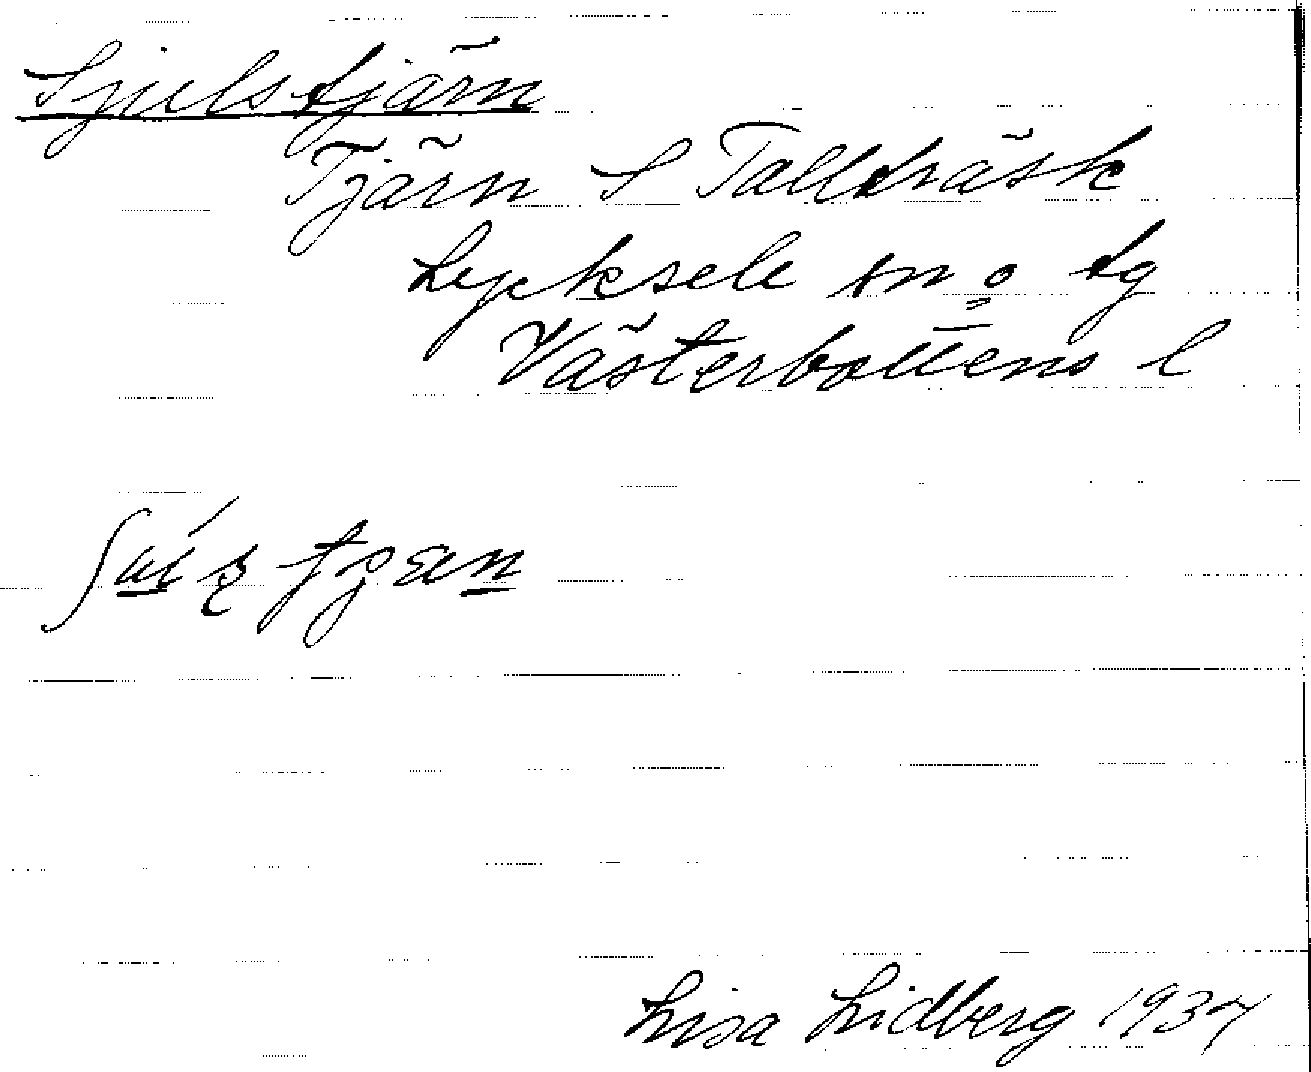 Sjulstjärn
Tjärn S Tallträsk
Lycksele sn o tg
Västerbottens l
Lisa Lidberg 1937